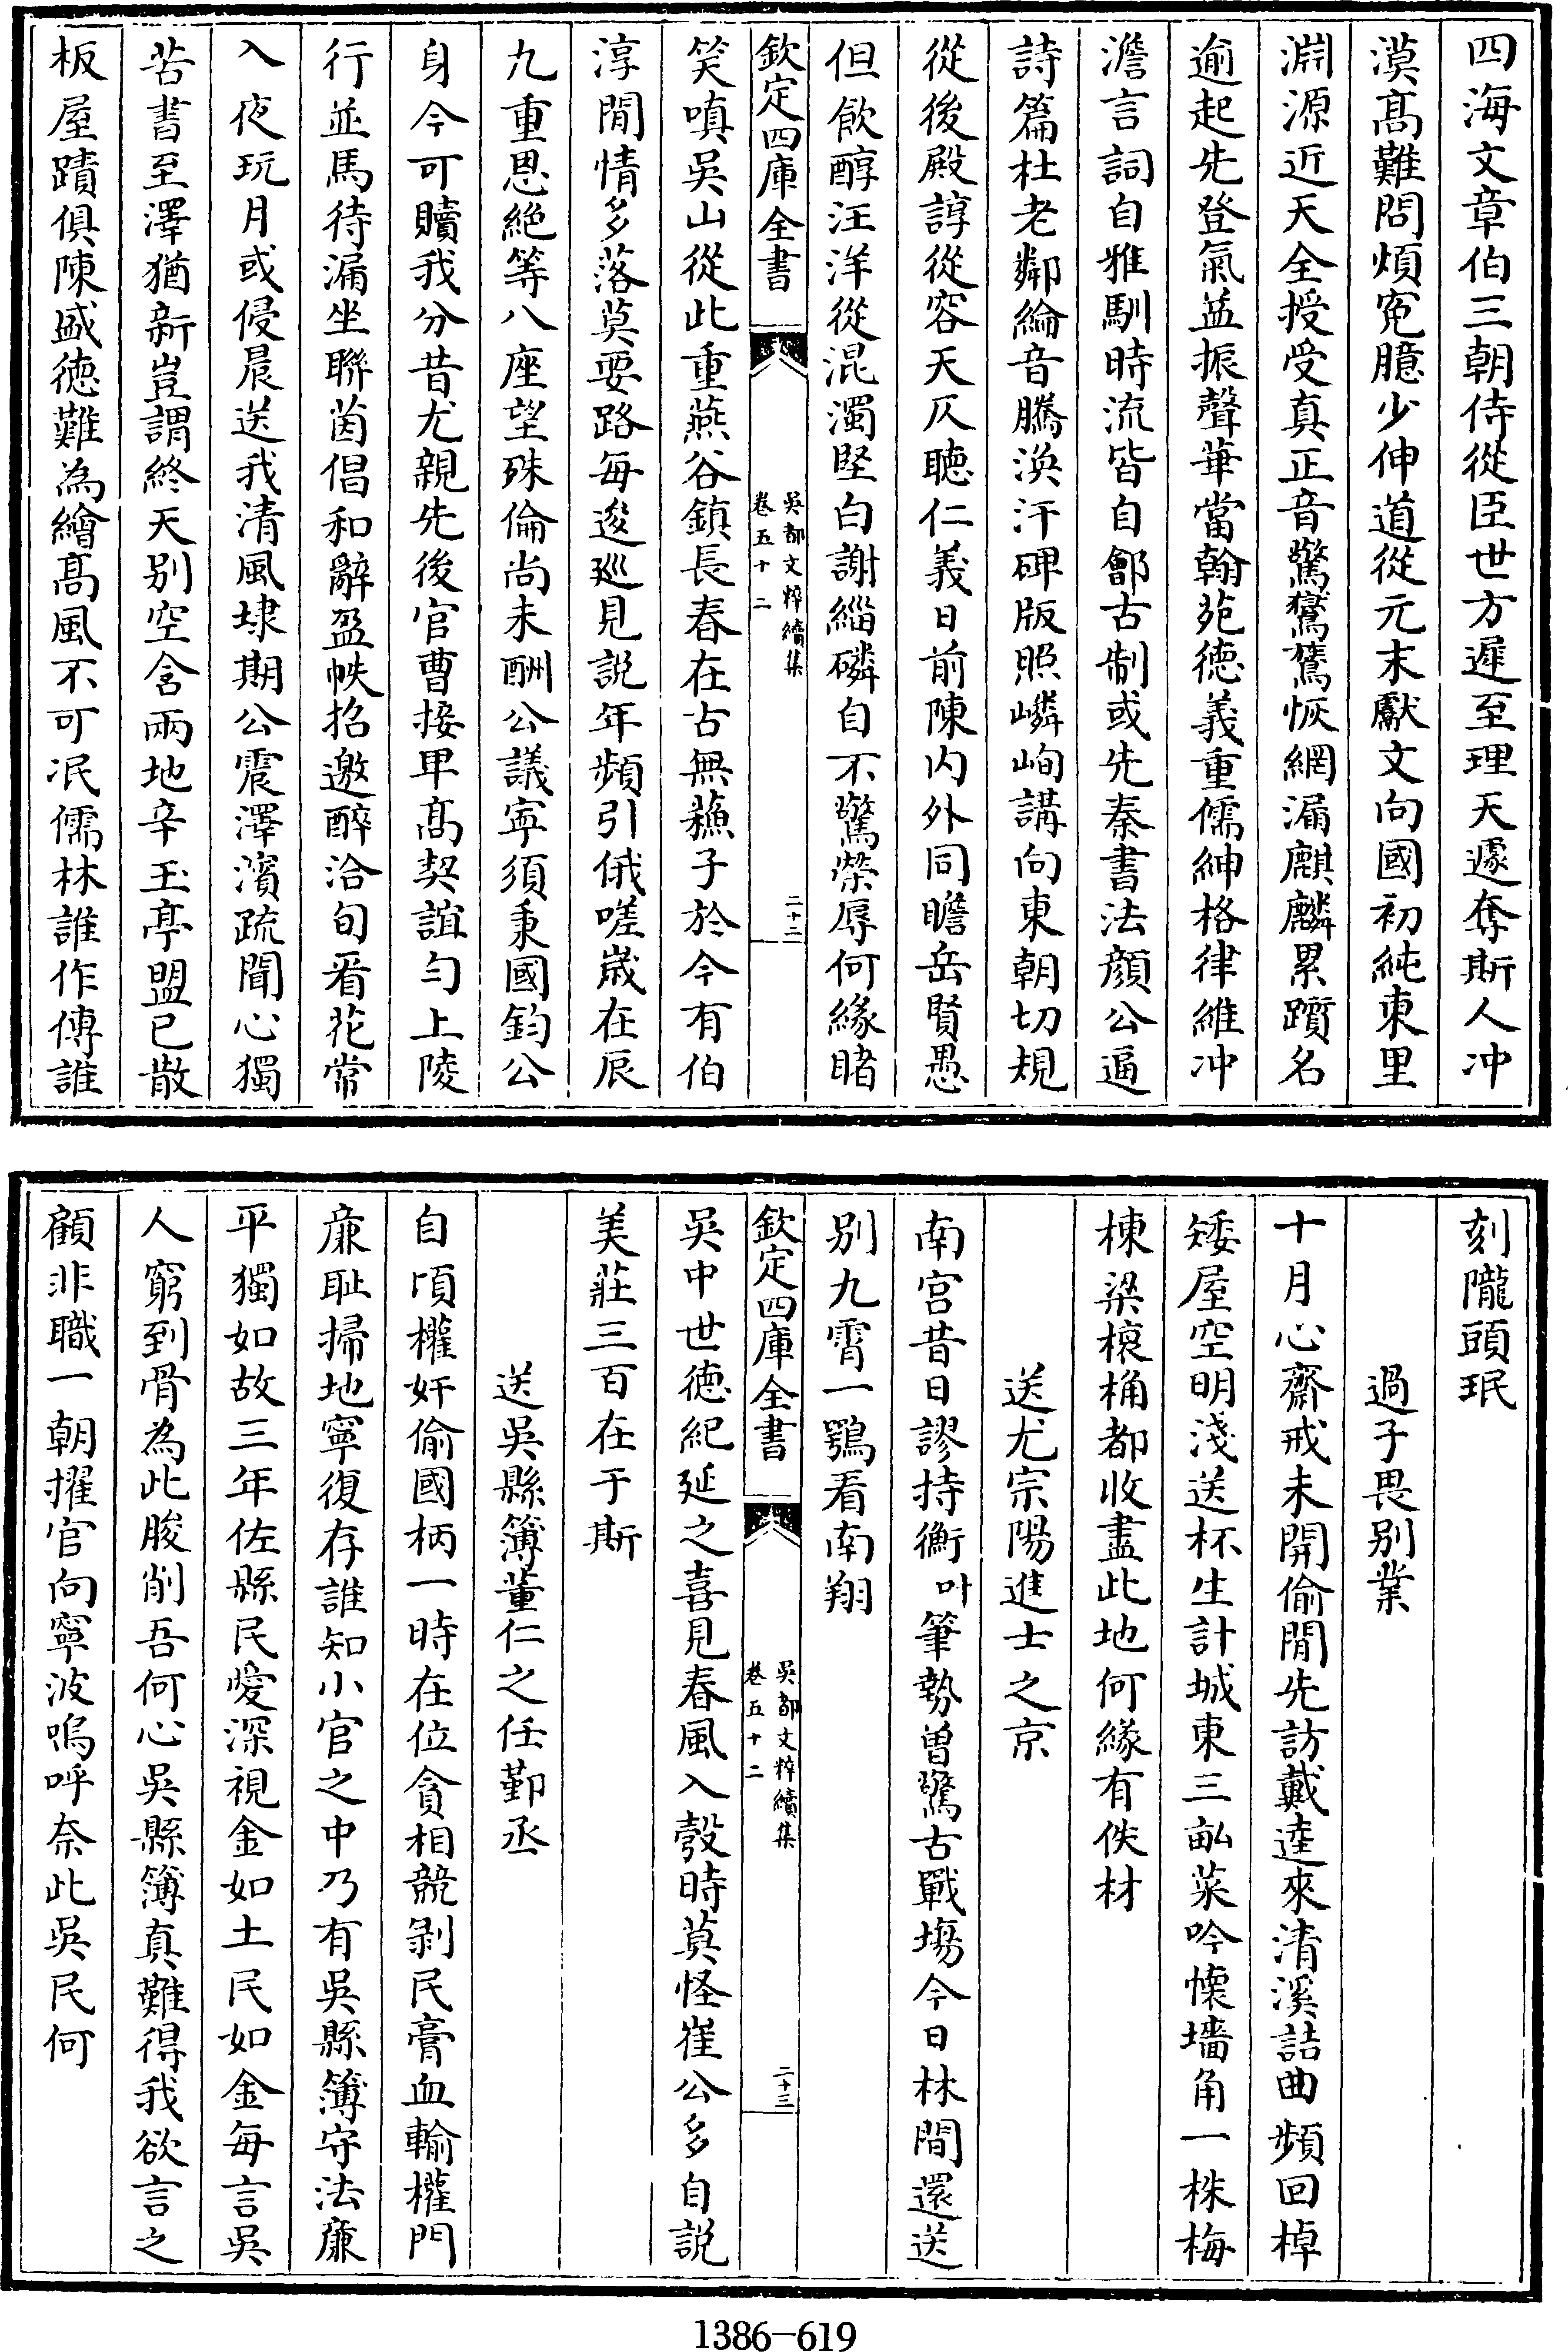 四海文章伯三朝侍從臣世方遲至理天遽奪斯人冲
漠髙難問煩寃臆少伸道從元末獻文向國初純東里
淵源近天全授受真正音驚鸑鷟恢網漏麒麟累躓名
逾起先登氣益振聲華當翰苑徳義重儒紳格律維冲
澹言詞自雅馴時流皆自鄶古制或先秦書法顔公逼
詩篇杜老鄰綸音騰渙汗碑版照嶙峋講向東朝切規
從後殿諄從容天仄聴仁義日前陳内外同瞻岳賢愚
但飲醇汪洋從混濁堅白謝緇磷自不驚榮辱何緣睹
欽定四庫全書
吳都文粹續集
卷五十二
二十二
笑嗔吳山從此重燕谷鎮長春在古無蘓子於今有伯
淳閒情多落莫要路每逡廵見説年頻引俄嗟嵗在辰
九重恩絶等八座望殊倫尚未酬公議寧須秉國鈞公
身今可贖我分昔尤親先後官曹接卑髙契誼勻上陵
行並馬待漏坐聯茵倡和辭盈帙招邀醉洽旬看花常
入夜玩月或侵晨送我清風埭期公震澤濱疏聞心獨
苦書至澤猶新豈謂終天别空含兩地辛玉亭盟已散
板屋蹟俱陳盛徳難為繪髙風不可泯儒林誰作傳誰
刻隴頭珉
過子畏别業
十月心齋戒未開偷閒先訪戴逵來清溪詰曲頻回棹
矮屋空明淺送杯生計城東三畝菜吟懷墻角一株梅
棟梁榱桷都收盡此地何緣有佚材
送尤宗陽進士之京
南宫昔日謬持衡叶筆勢曽驚古戰塲今日林間還送
别九霄一鶚看南翔
欽定四庫全書
吳都文粹續集
卷五十二
二十三
吳中世徳紀延之喜見春風入彀時莫怪崔公多自説
美莊三百在于斯
送吳縣簿董仁之任鄞丞
自頃權奸偷國柄一時在位貪相競剥民膏血輸權門
亷恥掃地寧復存誰知小官之中乃有吳縣簿守法亷
平獨如故三年佐縣民愛深視金如土民如金每言吳
人窮到骨為此朘削吾何心吳縣簿真難得我欲言之
顧非職一朝擢官向寧波嗚呼奈此吳民何
1386-619